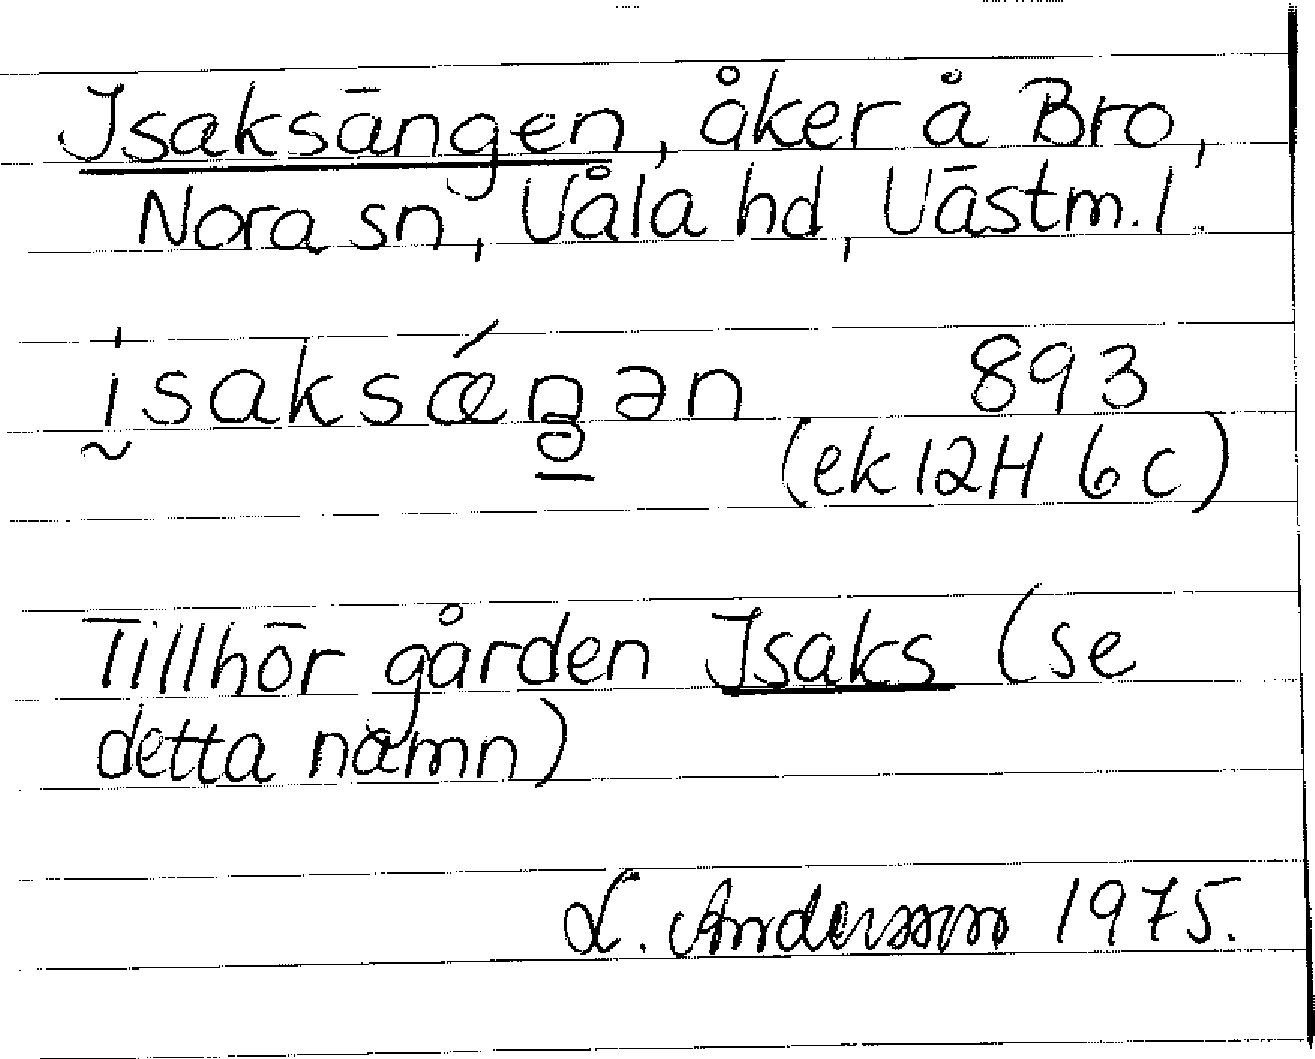 Isaksängen, åker å Bro,
Nora sn, Våla hd, Västm. l.
isaksǽŋən 893
(ek 12H 6c)
Tillhör gården Isaks (se
detta namn)
L. Andersson 1975.